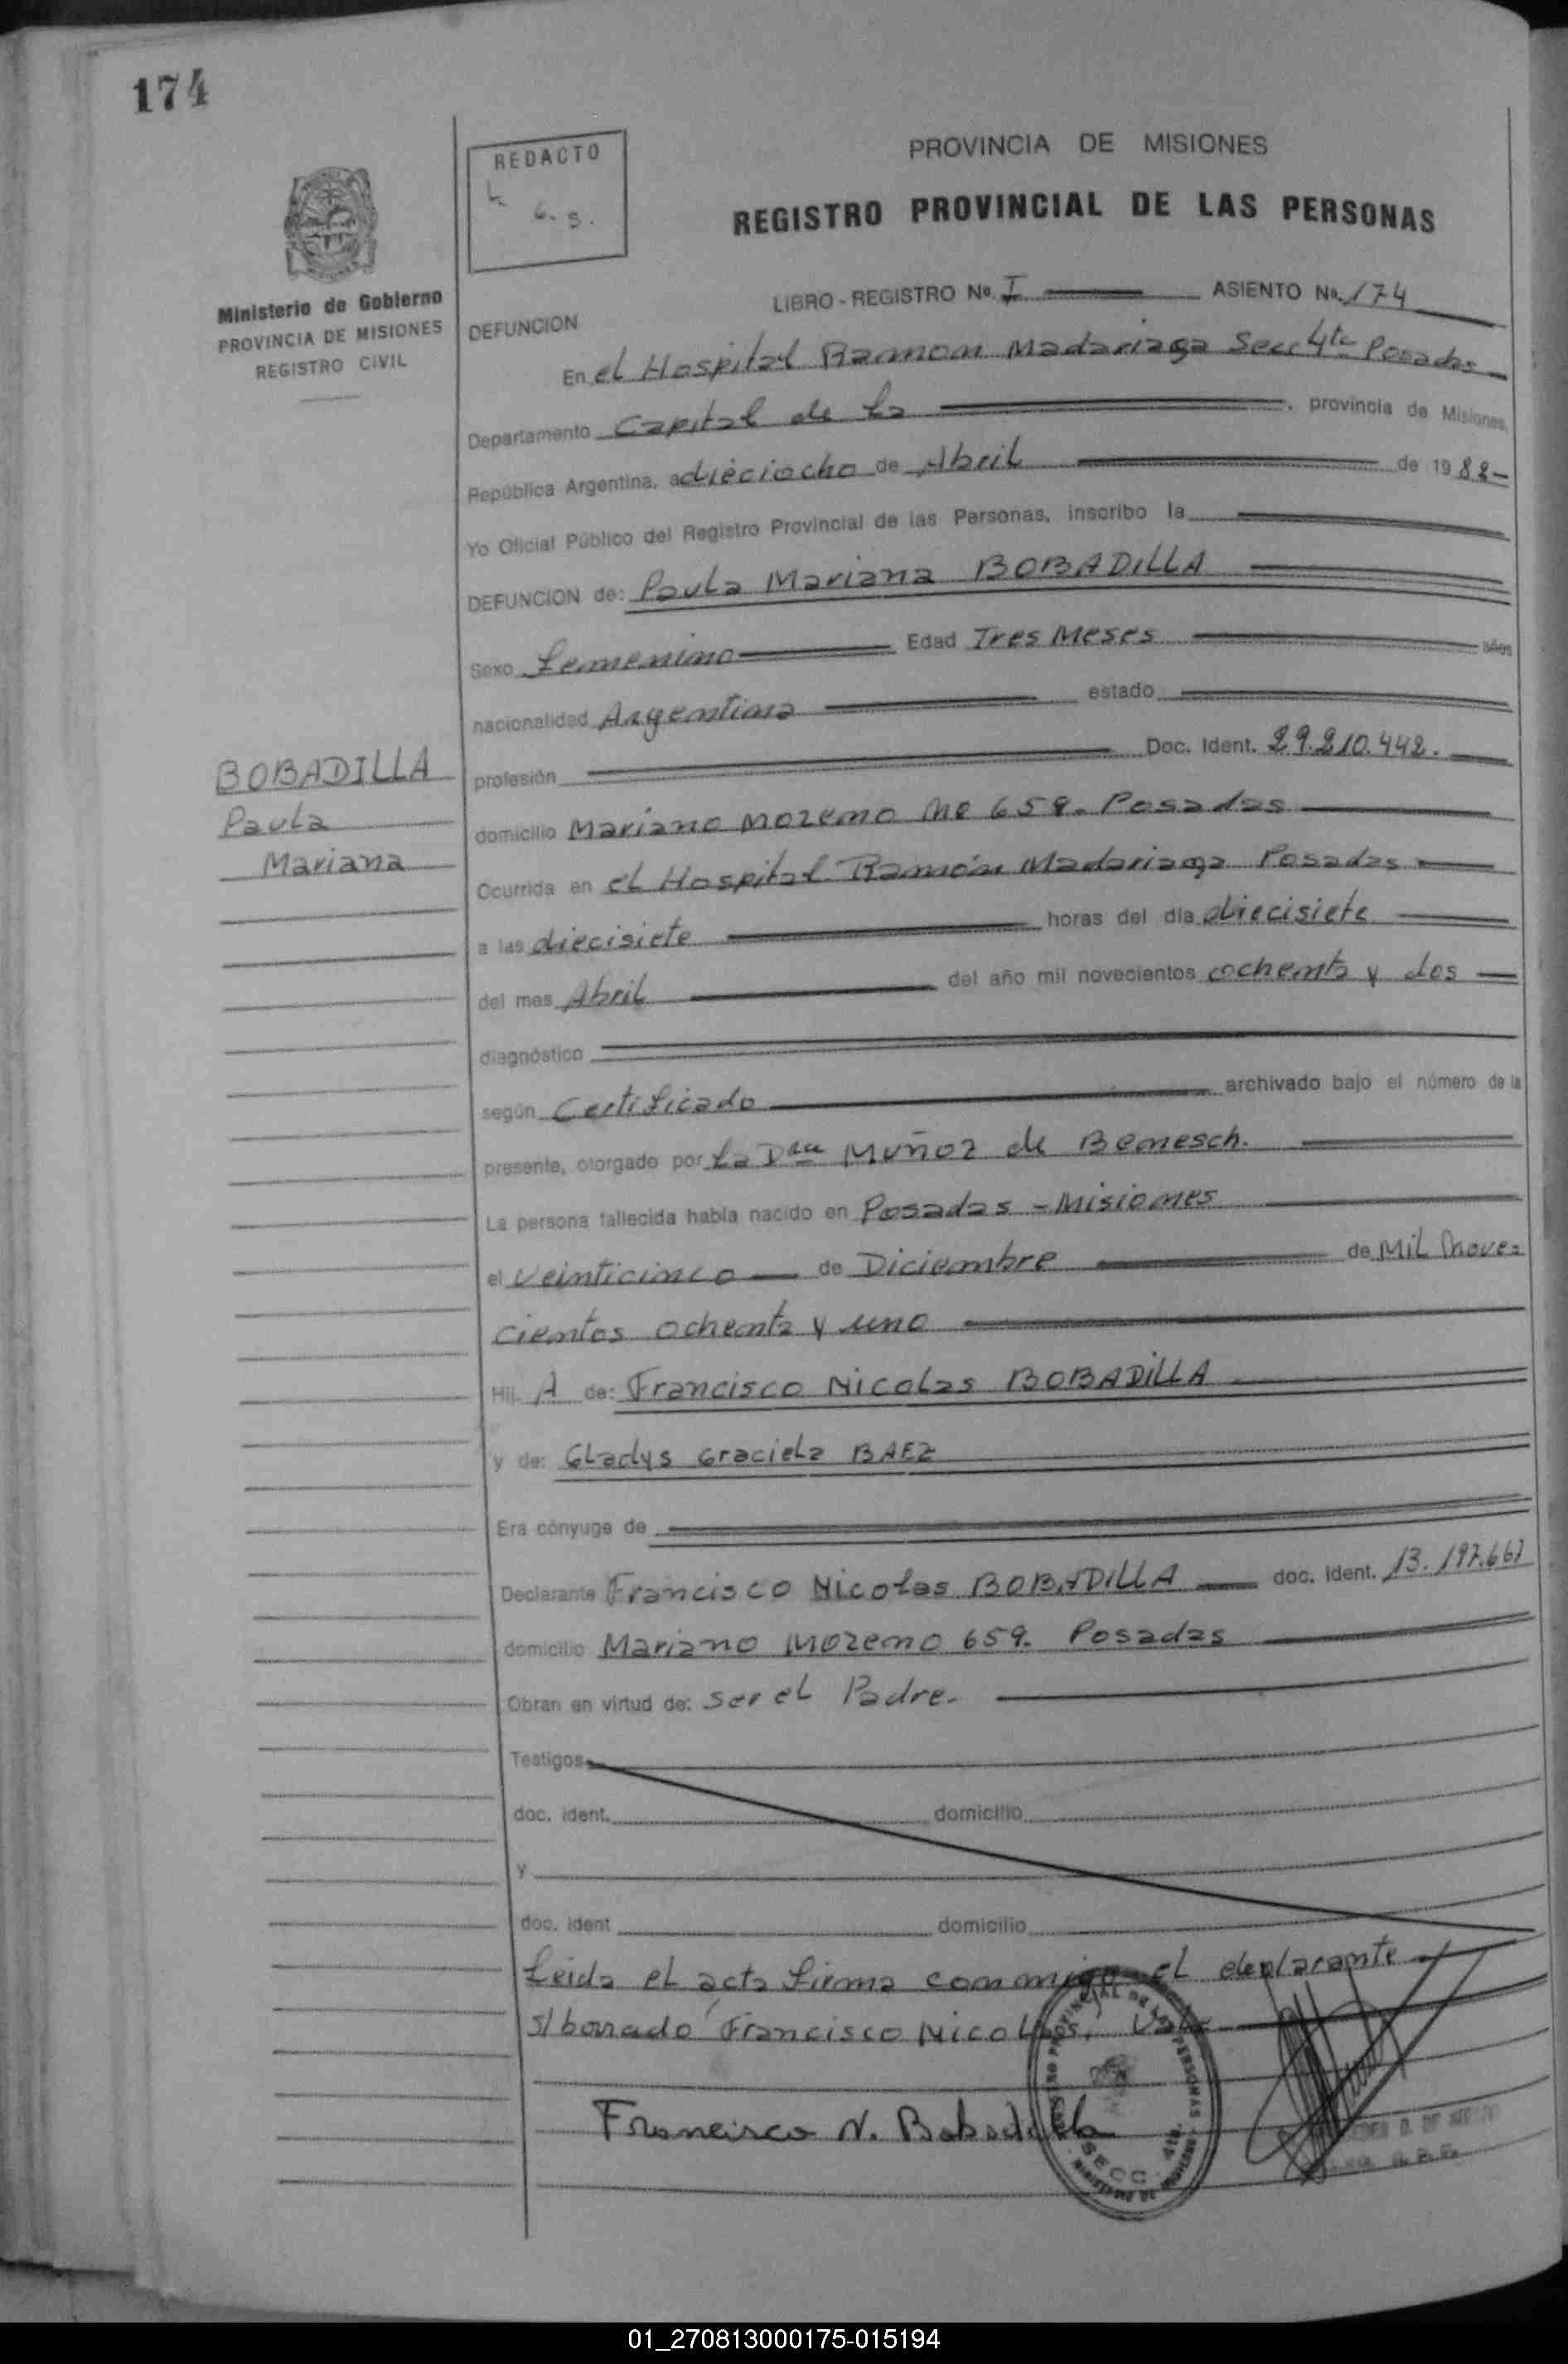 174
REDACTO
PROVINCIA DE MISIONES
REGISTRO PROVINCIAL DE LAS PERSONAS
Ministerio de Gobierno
PROVINCIA DE MISIONES
REGISTRO CIVIL
LIBRO - REGISTRO No. I ASIENTO No. 174
DEFUNCION
En el Hospital Ramon Madariaga Secc 4ta Posadas
Departamento Capital de La provincia de Misiones,
República Argentina, a dieciocho de Abril de 1982
Yo Oficial Público del Registro Provincial de las Personas, inscribo la
DEFUNCION de: Paula Mariana BOBADILLA
Sexo femenino Edad Tres Meses años
nacionalidad Argentina estado
profesión Doc. Ident. 29.210.442.
BOBADILLA
Paula
Mariana
domicilio Mariano Moreno No 659. Posadas
Ocurrida en el Hospital Ramón Madariaga Posadas
a las diecisiete horas del día diecisiete
del mes Abril del año mil novecientos ochenta y dos
diagnóstico
según Certificado archivado bajo el número de la
presente, otorgado por La Dra Muñoz de Benesch.
La persona fallecida había nacido en Posadas - Misiones
el Veinticinco de Diciembre de Mil Nove=
cientos ochenta y uno
Hij A de: Francisco Nicolas BOBADILLA
y de: Gladys Graciela BAEZ
Era cónyuge de
Declarante Francisco Nicolas BOBADILLA doc. ident. 13.197.667
domicilio Mariano Moreno 659. Posadas
Obran en virtud de: ser el Padre.
Testigos
doc. ident. domicilio
y
doc. ident domicilio
Leida el acta firma conmigo el declarante
s/borrado "Francisco Nicolas," Vale
Francisco N. Bobadilla
SECC. 4ta.
01_270813000175-015194